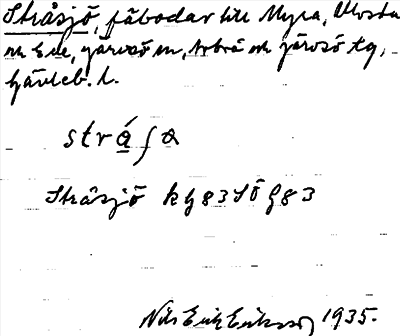 Stråsjö, fäbodar till Myra, Vlosta
och Ede, Järvsö sn, Arbrå och Järvsö tg,
Gävleb. l.
stráʃɑ
Stråsjö kg83SÖ g83
Nils Erik Eriksson 1935.